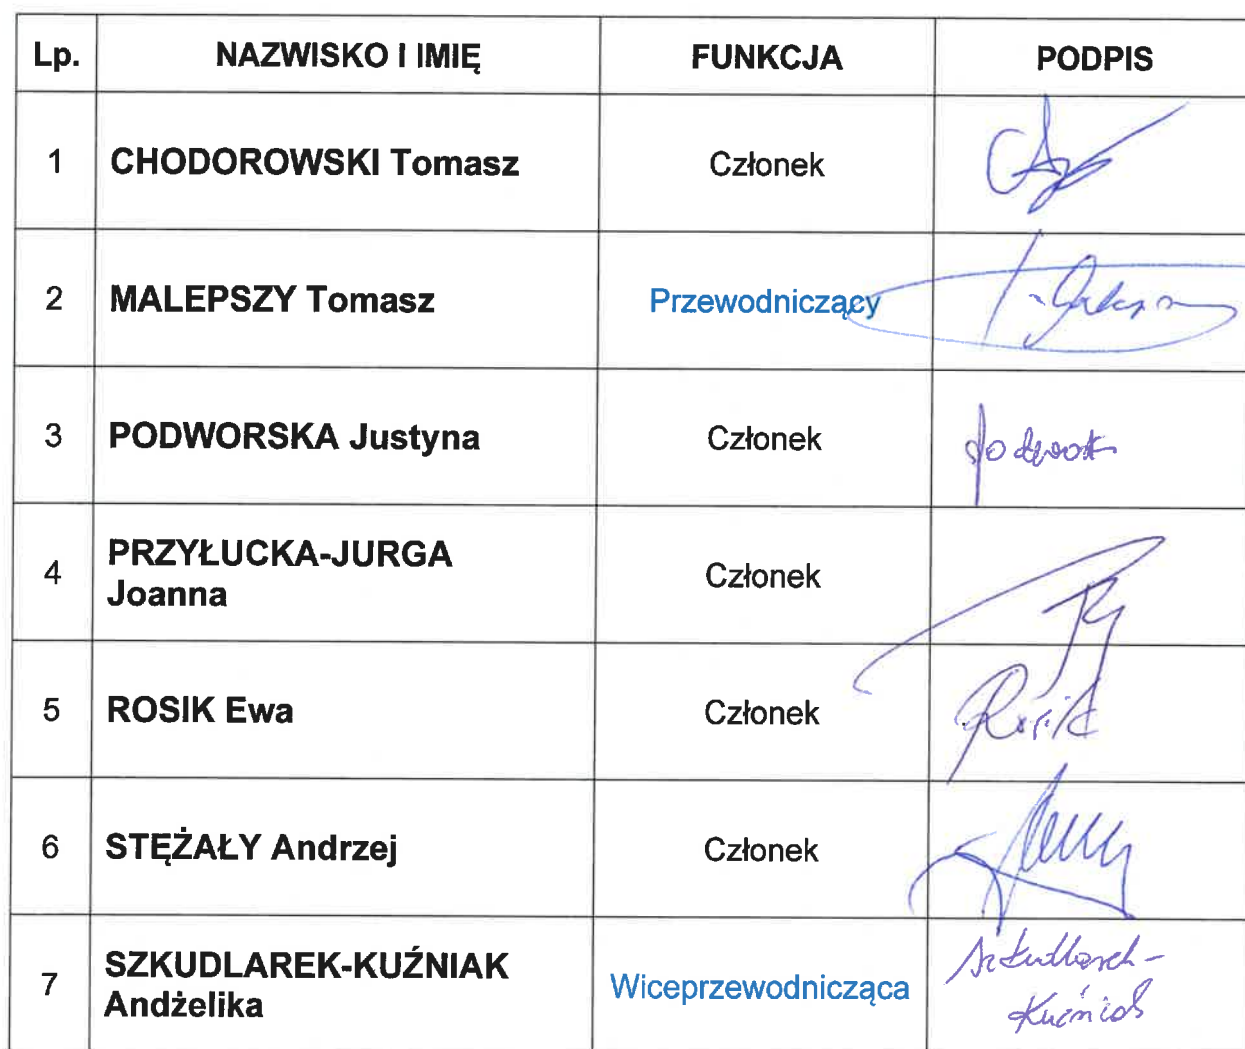 Lp. NAZWISKO I IMIĘ FUNKCJA PODPIS
1 CHODOROWSKI Tomasz Członek
2 MALEPSZY Tomasz Przewodniczący
3 PODWORSKA Justyna Członek
4 PRZYŁUCKA-JURGA
Joanna Członek
5 ROSIK Ewa Członek Rosik
6 STĘŻAŁY Andrzej Członek
7 SZKUDLAREK-KUŹNIAK
Andżelika Wiceprzewodnicząca Szkudlarek-
Kuźniak